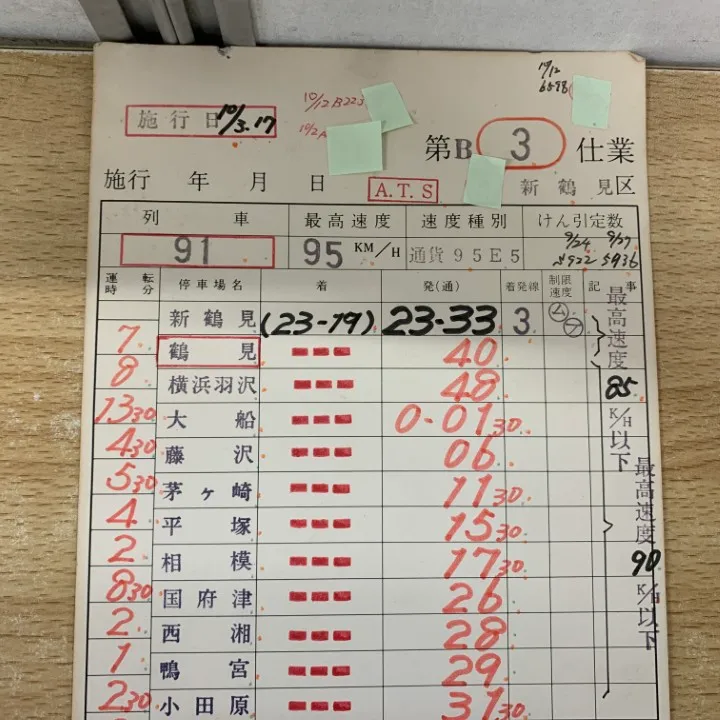 施行日 10/3.17
10/12 B223
10/2A
10/12
第B 3 仕業
施行 年 月 日 A.T.S 新鶴見区
列車 最高速度 速度種別 けん引定数
91 95 KM/H 通貨95E5 9/24 9/27
5922 5936
運転時分 停車場名 着 発(通) 着発線 制限速度 記事
新鶴見 (23-19) 23-33 3
7 鶴見 40
8 横浜羽沢 48
13 30 大船 0-01 30
4 30 藤沢 06
5 30 茅ヶ崎 11 30
4 平塚 15 30
2 相模 17 30
8 30 国府津 26
2 西湘 28
1 鴨宮 29
2 30 小田原 31 30
最高速度85K/H以下
最高速度90K/H以下